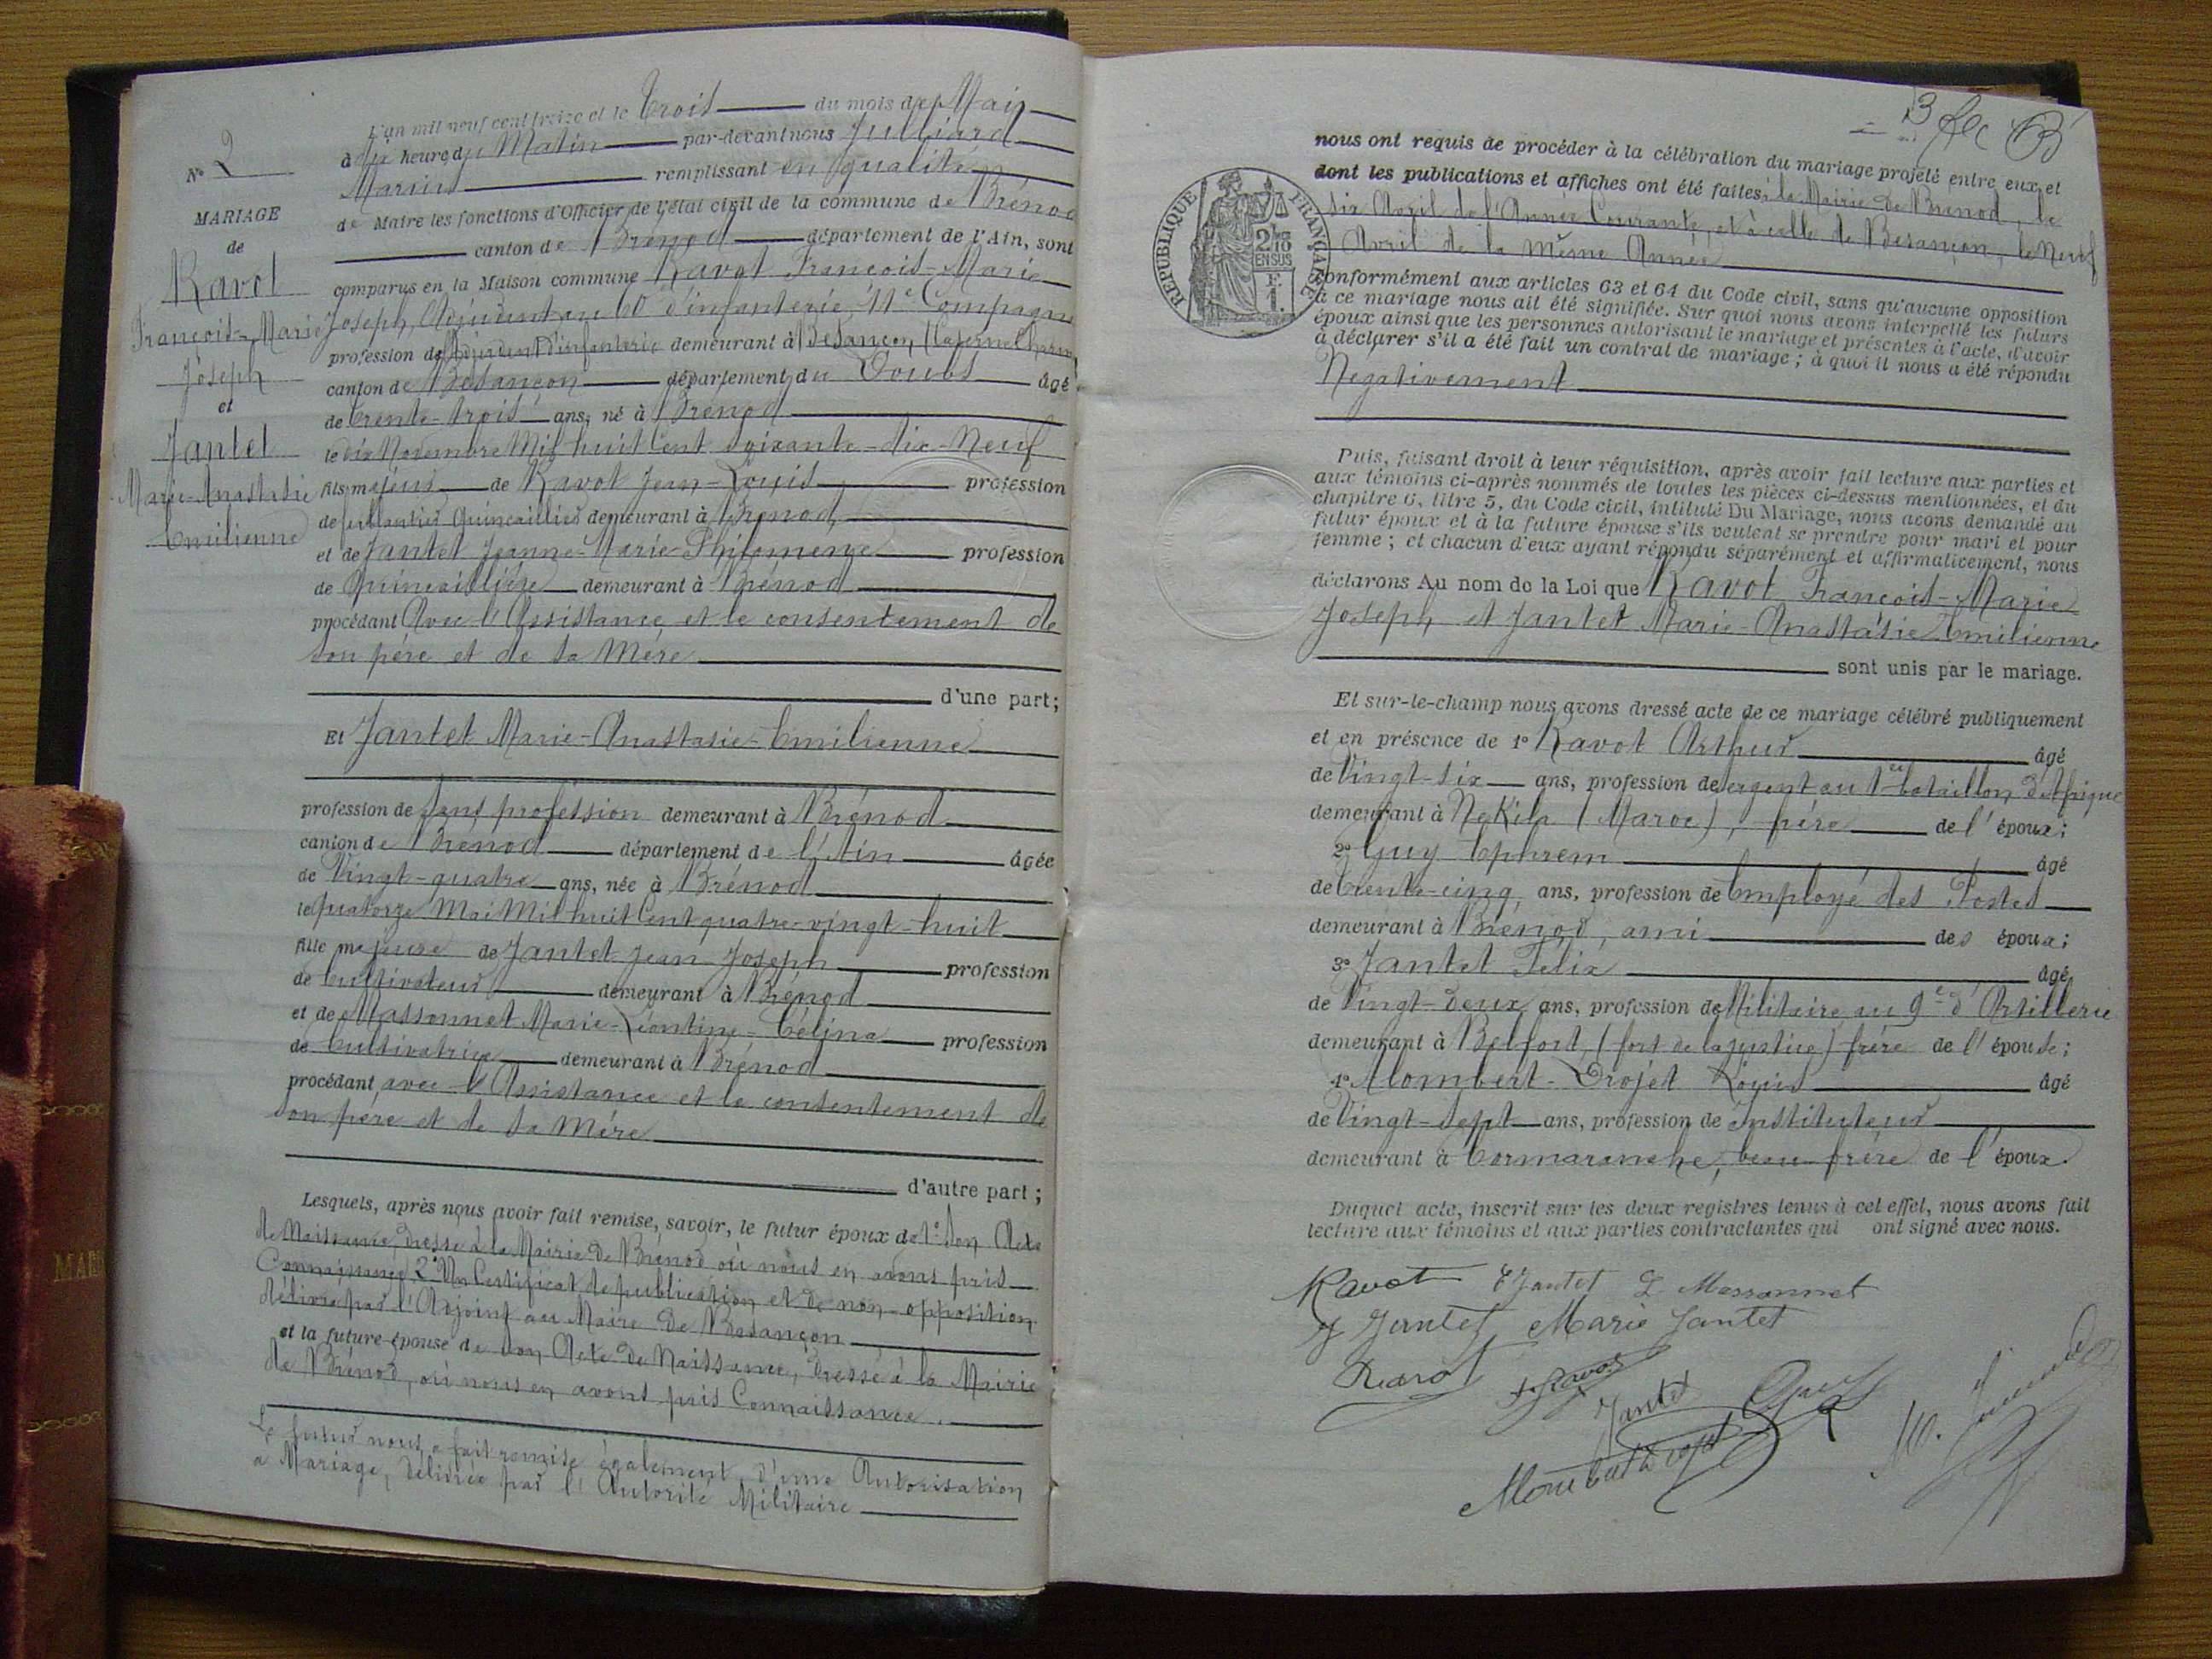 N° 2
MARIAGE
de
Ravot
François-Marie
Joseph
et
Jantet
Marie-Anastasie
Emilienne
L'an mil neuf cent treize et le trois du mois de Mai
à dix heures du Matin par-devant nous Julliard
Marius remplissant en qualité
de Maire les fonctions d'Officier de l'état civil de la commune de Brénod
canton de Brénod département de l'Ain, sont
comparus en la Maison commune Ravot François-Marie
Joseph, Adjudant au 60e d'infanterie, 11e Compagnie
profession de Adjudant d'infanterie demeurant à Besançon (Caserne
canton de Besançon département du Doubs âgé
de trente-trois ans, né à Brénod
le dix Novembre Mil huit Cent Soixante-dix-Neuf
fils majeur de Ravot Jean-Louis profession
de ferblantier Quincaillier demeurant à Brénod,
et de Jantet Jeanne-Marie-Philomène profession
de Quincaillière demeurant à Brénod
procédant Avec l'Assistance et le consentement de
son père et de sa Mère
d'une part;
Et Jantet Marie-Anastasie-Emilienne
profession de sans profession demeurant à Brénod
canton de Brénod département de l'Ain âgée
de Vingt-quatre ans, née à Brénod
le quatorze Mai Mil huit Cent quatre-vingt-huit
fille majeure de Jantet Jean-Joseph profession
de Cultivateur demeurant à Brénod
et de Massonnet Marie-Léontine-Célina profession
de Cultivatrice demeurant à Brénod
procédant avec l'Assistance et le consentement de
son père et de sa Mère
d'autre part;
Lesquels, après nous avoir fait remise, savoir, le futur époux de 1° Son Acte
de Naissance, dressé à la Mairie de Brénod où nous en avons pris
Connaissance, 2° Un Certificat de publication et de non-opposition
délivré par l'Adjoint au Maire de Besançon
et la future épouse de son Acte de Naissance, dressé à la Mairie
de Brénod, où nous en avons pris Connaissance.
Le futur nous a fait remise également, d'une Autorisation
à Mariage, délivrée par l'Autorité Militaire
nous ont requis de procéder à la célébration du mariage projeté entre eux et
dont les publications et affiches ont été faites, à la Mairie de Brénod, le
six Avril de l'Année Courante, et à celle de Besançon, le Neuf
Avril de la même Année
RÉPUBLIQUE FRANÇAISE
2/10 EN SUS
F. 1.
conformément aux articles 63 et 64 du Code civil, sans qu'aucune opposition
à ce mariage nous ait été signifiée. Sur quoi nous avons interpellé les futurs
époux ainsi que les personnes autorisant le mariage et présentes à l'acte, d'avoir
à déclarer s'il a été fait un contrat de mariage; à quoi il nous a été répondu
Négativement
Puis, faisant droit à leur réquisition, après avoir fait lecture aux parties et
aux témoins ci-après nommés de toutes les pièces ci-dessus mentionnées, et du
chapitre 6, titre 5, du Code civil, intitulé Du Mariage, nous avons demandé au
futur époux et à la future épouse s'ils veulent se prendre pour mari et pour
femme; et chacun d'eux ayant répondu séparément et affirmativement, nous
déclarons Au nom de la Loi que Ravot François-Marie
Joseph et Jantet Marie-Anastasie Emilienne
sont unis par le mariage.
Et sur-le-champ nous avons dressé acte de ce mariage célébré publiquement
et en présence de 1° Ravot Arthur âgé
de Vingt-six ans, profession de sergent au 1er bataillon d'Afrique
demeurant à NeKila (Maroc), frère de l'époux;
2° Guy Ephrem âgé
de trente-cinq ans, profession de Employé des Postes
demeurant à Brénod, ami des époux;
3° Jantet Félix âgé
de Vingt-deux ans, profession de Militaire au 9e d'Artillerie
demeurant à Belfort (fort de la justice) frère de l'épouse;
4° Mombert-Drojet Louis âgé
de Vingt-sept ans, profession de Instituteur
demeurant à Cormaranche, beau-frère de l'époux.
Duquel acte, inscrit sur les deux registres tenus à cet effet, nous avons fait
lecture aux témoins et aux parties contractantes qui ont signé avec nous.
Ravot E Jantet L Massonnet
J Jantet Marie Jantet
Ravot Ravot
Jantet Guy